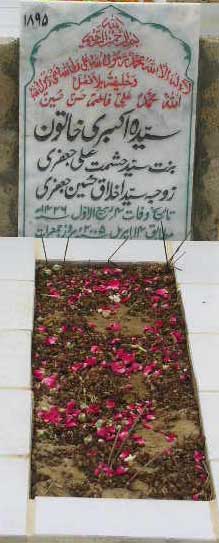 ۱۸۹۵
بسم اللہ الرحمن الرحیم
لا الہ الا اللہ محمد رسول اللہ علی ولی اللہ وصی رسول اللہ
وخلیفتہ بلا فصل
اللہ محمد علی فاطمہ حسن حسین
سیدہ اکبری خاتون
بنت سید حشمت علی جعفری
زوجہ سید اخلاق حسین جعفری
تاریخ وفات ربیع الاول ۱۴۲۶ھ
مطابق ۱۴ اپریل ۲۰۰۵ء بروز جمعرات